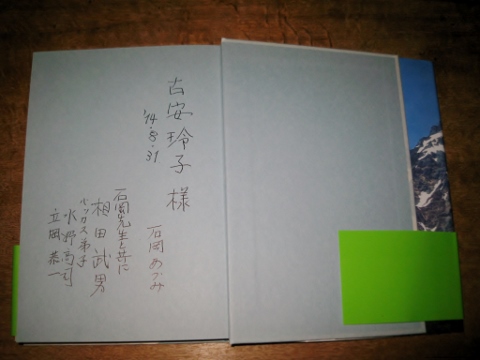 古安玲子 様
'14.8.31
石岡あづみ
石岡先生と共に
相田武男
ルッカス弟子
水野高司
立岡恭一